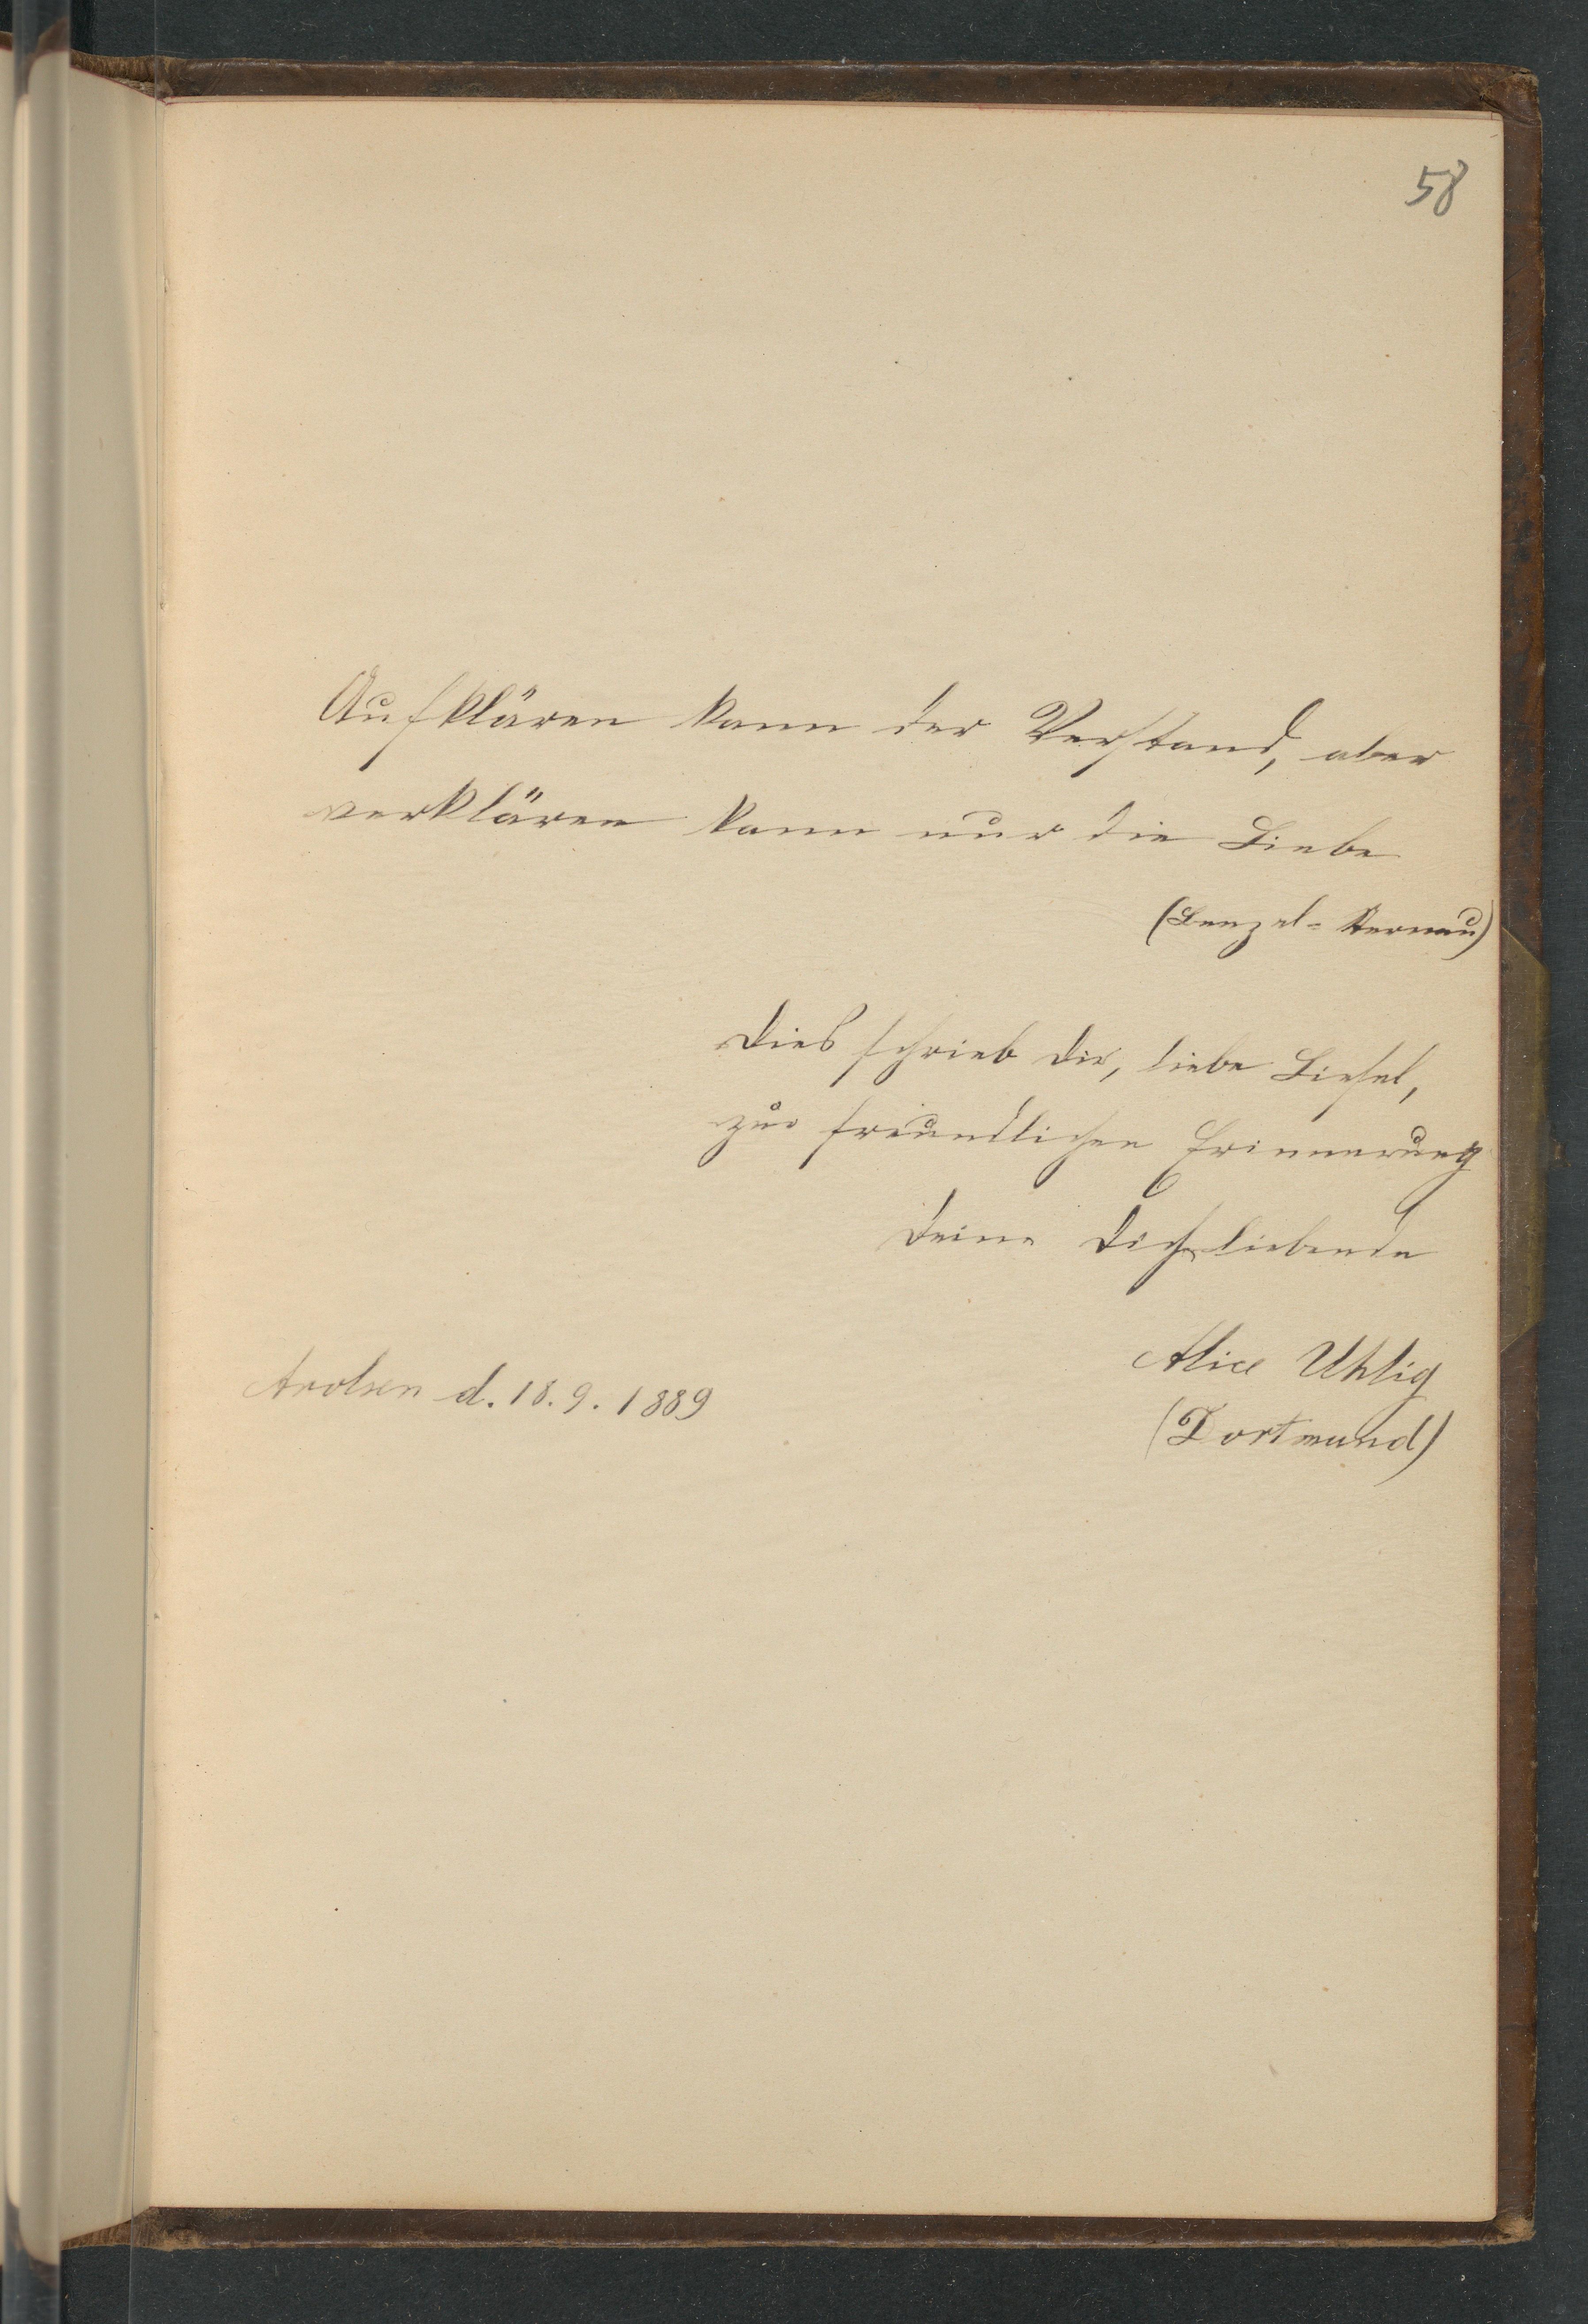 58
Aufklären kann der Verstand, aber
verklären kann nur die Liebe
Dies schrieb Dir, liebe Liesel,
zur freundlichen Erinnerung
Deine Dich liebende
Alice Uhlig
Arolsen d. 18. 9. 1889
(Dortmund)